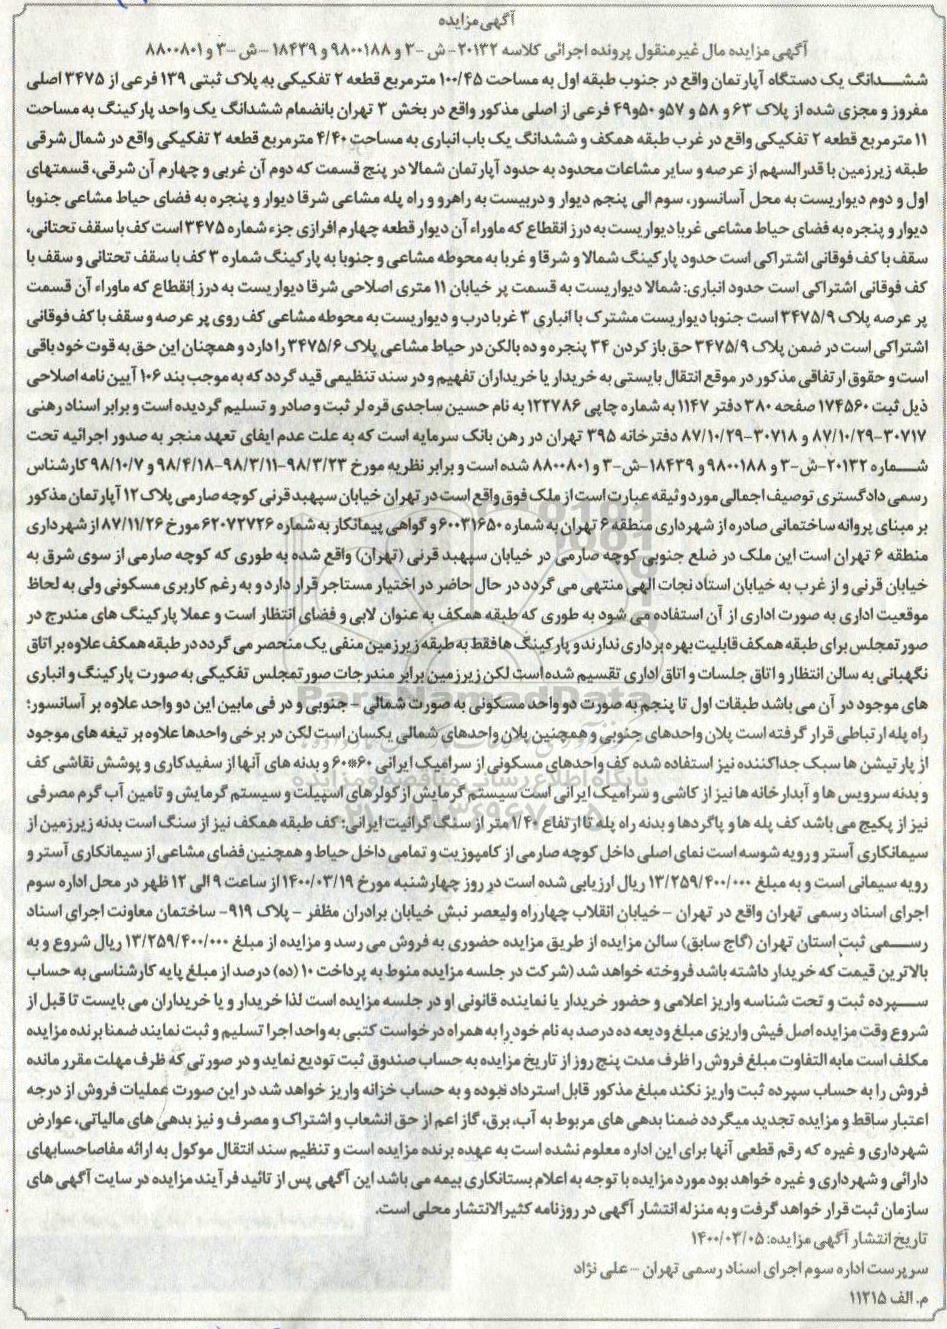 آگهی مزایده
آگهی مزایده مال غیرمنقول پرونده اجرائی کلاسه ۲۰۱۳۲- ش -۳ و ۹۸۰۰۱۸۸ و ۱۸۴۳۹ -ش -۳ و ۸۸۰۰۸۰۱
ششـــدانگ یک دستگاه آپارتمان واقع در جنوب طبقه اول به مساحت ۱۰۰/۴۵ مترمربع قطعه ۲ تفکیکی به پلاک ثبتی ۱۳۹ فرعی از ۳۴۷۵ اصلی
مفروز و مجزی شده از پلاک ۶۳ و ۵۸ و ۵۷و ۵۰و۴۹ فرعی از اصلی مذکور واقع در بخش ۳ تهران بانضمام ششدانگ یک واحد پارکینگ به مساحت
۱۱ مترمربع قطعه ۲ تفکیکی واقع در غرب طبقه همکف و ششدانگ یک باب انباری به مساحت ۴/۴۰ مترمربع قطعه ۲ تفکیکی واقع در شمال شرقی
طبقه زیرزمین با قدرالسهم از عرصه و سایر مشاعات محدود به حدود آپارتمان شمالا در پنج قسمت که دوم آن غربی و چهارم آن شرقی، قسمتهای
اول و دوم دیواریست به محل آسانسور، سوم الی پنجم دیوار و دربیست به راهرو و راه پله مشاعی شرقا دیوار و پنجره به فضای حیاط مشاعی جنوبا
دیوار و پنجره به فضای حیاط مشاعی غربا دیواریست به درز انقطاع که ماوراء آن دیوار قطعه چهارم افرازی جزء شماره ۳۴۷۵ است کف با سقف تحتانی،
سقف با کف فوقانی اشتراکی است حدود پارکینگ شمالا و شرقا و غربا به محوطه مشاعی و جنوبا به پارکینگ شماره ۳ کف با سقف تحتانی و سقف با
کف فوقانی اشتراکی است حدود انباری: شمالا دیواریست به قسمت پر خیابان ۱۱ متری اصلاحی شرقا دیواریست به درز انقطاع که ماوراء آن قسمت
پر عرصه پلاک ۳۴۷۵/۹ است جنوبا دیواریست مشترک با انباری ۳ غربا درب و دیواریست به محوطه مشاعی کف روی پر عرصه و سقف با کف فوقانی
اشتراکی است در ضمن پلاک ۳۴۷۵/۹ حق باز کردن ۳۴ پنجره و ده بالکن در حیاط مشاعی پلاک ۳۴۷۵/۶ را دارد و همچنان این حق به قوت خود باقی
است و حقوق ارتفاقی مذکور در موقع انتقال بایستی به خریدار یا خریداران تفهیم و در سند تنظیمی قید گردد که به موجب بند ۱۰۶ آیین نامه اصلاحی
ذیل ثبت ۱۷۴۵۶۰ صفحه ۳۸۰ دفتر ۱۱۴۷ به شماره چاپی ۱۲۲۷۸۶ به نام حسین ساجدی قره لر ثبت و صادر و تسلیم گردیده است و برابر اسناد رهنی
۳۰۷۱۷-۸۷/۱۰/۲۹ و ۳۰۷۱۸-۸۷/۱۰/۲۹ دفترخانه ۳۹۵ تهران در رهن بانک سرمایه است که به علت عدم ایفای تعهد منجر به صدور اجرائیه تحت
شـــماره ۲۰۱۳۲-ش-۳ و ۹۸۰۰۱۸۸ و ۱۸۴۳۹-ش-۳ و ۸۸۰۰۸۰۱ شده است و برابر نظریه مورخ ۹۸/۳/۲۳-۹۸/۳/۱۱-۹۸/۴/۱۸ و ۹۸/۱۰/۷ کارشناس
رسمی دادگستری توصیف اجمالی مورد وثیقه عبارت است از ملک فوق واقع است در تهران خیابان سپهبد قرنی کوچه صارمی پلاک ۱۲ آپارتمان مذکور
بر مبنای پروانه ساختمانی صادره از شهرداری منطقه ۶ تهران به شماره ۶۰۰۳۱۶۵۰ و گواهی پیمانکار به شماره ۶۲۰۷۲۷۲۶ مورخ ۸۷/۱۱/۲۶ از شهرداری
منطقه ۶ تهران است این ملک در ضلع جنوبی کوچه صارمی در خیابان سپهبد قرنی (تهران) واقع شده به طوری که کوچه صارمی از سوی شرق به
خیابان قرنی و از غرب به خیابان استاد نجات الهی منتهی می گردد در حال حاضر در اختیار مستاجر قرار دارد و به رغم کاربری مسکونی ولی به لحاظ
موقعیت اداری به صورت اداری از آن استفاده می شود به طوری که طبقه همکف به عنوان لابی و فضای انتظار است و عملا پارکینگ های مندرج در
صورتمجلس برای طبقه همکف قابلیت بهره برداری ندارند و پارکینگ ها فقط به طبقه زیرزمین منفی یک منحصر می گردد در طبقه همکف علاوه بر اتاق
نگهبانی به سالن انتظار و اتاق جلسات و اتاق اداری تقسیم شده است لکن زیرزمین برابر مندرجات صورتمجلس تفکیکی به صورت پارکینگ و انباری
های موجود در آن می باشد طبقات اول تا پنجم به صورت دو واحد مسکونی به صورت شمالی - جنوبی و در فی مابین این دو واحد علاوه بر آسانسور؛
راه پله ارتباطی قرار گرفته است پلان واحدهای جنوبی و همچنین پلان واحدهای شمالی یکسان است لکن در برخی واحدها علاوه بر تیغه های موجود
از پارتیشن ها سبک جداکننده نیز استفاده شده کف واحدهای مسکونی از سرامیک ایرانی ۶۰*۶۰ و بدنه های آنها از سفیدکاری و پوشش نقاشی کف
و بدنه سرویس ها و آبدارخانه ها نیز از کاشی و سرامیک ایرانی است سیستم گرمایش از کولرهای اسپیلت و سیستم گرمایش و تامین آب گرم مصرفی
نیز از پکیج می باشد کف پله ها و پاگردها و بدنه راه پله تا ارتفاع ۱/۴۰ متر از سنگ گرانیت ایرانی؛ کف طبقه همکف نیز از سنگ است بدنه زیرزمین از
سیمانکاری آستر و رویه شوسه است نمای اصلی داخل کوچه صارمی از کامپوزیت و تمامی داخل حیاط و همچنین فضای مشاعی از سیمانکاری آستر و
رویه سیمانی است و به مبلغ ۱۳/۲۵۹/۴۰۰/۰۰۰ ریال ارزیابی شده است در روز چهارشنبه مورخ ۱۴۰۰/۰۳/۱۹ از ساعت ۹ الی ۱۲ ظهر در محل اداره سوم
اجرای اسناد رسمی تهران واقع در تهران -خیابان انقلاب چهارراه ولیعصر نبش خیابان برادران مظفر - پلاک ۹۱۹- ساختمان معاونت اجرای اسناد
رســـمی ثبت استان تهران (گاج سابق) سالن مزایده از طریق مزایده حضوری به فروش می رسد و مزایده از مبلغ ۱۳/۲۵۹/۴۰۰/۰۰۰ ریال شروع و به
بالاترین قیمت که خریدار داشته باشد فروخته خواهد شد (شرکت در جلسه مزایده منوط به پرداخت ۱۰ (ده) درصد از مبلغ پایه کارشناسی به حساب
ســـپرده ثبت و تحت شناسه واریز اعلامی و حضور خریدار یا نماینده قانونی او در جلسه مزایده است لذا خریدار و یا خریداران می بایست تا قبل از
شروع وقت مزایده اصل فیش واریزی مبلغ ودیعه ده درصد به نام خود را به همراه درخواست کتبی به واحد اجرا تسلیم و ثبت نمایند ضمنا برنده مزایده
مکلف است مابه التفاوت مبلغ فروش را ظرف مدت پنج روز از تاریخ مزایده به حساب صندوق ثبت تودیع نماید و در صورتی که ظرف مهلت مقرر مانده
فروش را به حساب سپرده ثبت واریز نکند مبلغ مذکور قابل استرداد نبوده و به حساب خزانه واریز خواهد شد در این صورت عملیات فروش از درجه
اعتبار ساقط و مزایده تجدید میگردد ضمنا بدهی های مربوط به آب، برق، گاز اعم از حق انشعاب و اشتراک و مصرف و نیز بدهی های مالیاتی، عوارض
شهرداری و غیره که رقم قطعی آنها برای این اداره معلوم نشده است به عهده برنده مزایده است و تنظیم سند انتقال موکول به ارائه مفاصاحسابهای
دارائی و شهرداری و غیره خواهد بود مورد مزایده با توجه به اعلام بستانکاری بیمه می باشد این آگهی پس از تائید فرآیند مزایده در سایت آگهی های
سازمان ثبت قرار خواهد گرفت و به منزله انتشار آگهی در روزنامه کثیرالانتشار محلی است.
تاریخ انتشار آگهی مزایده: ۱۴۰۰/۰۳/۰۵
سرپرست اداره سوم اجرای اسناد رسمی تهران - علی نژاد
م. الف ۱۱۲۱۵